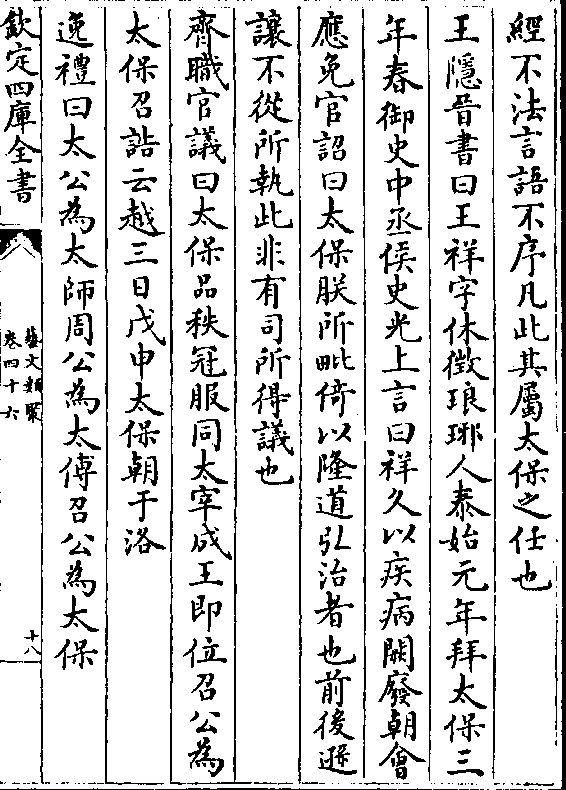 經不法言語不序凡此其屬太保之任也
王隱晉書曰王祥字休徴琅琊人泰始元年拜太保三
年春御史中丞侯史光上言曰祥久以疾病闕廢朝會
應免官詔曰太保朕所毗倚以隆道弘治者也前後遜
讓不從所執此非有司所得議也
齊職官議曰太保品秩冠服同太宰成王即位召公為
太保召誥云越三日戊申太保朝于洛
逸禮曰太公為太師周公為太傅召公為太保
欽定四庫全書
藝文類聚
卷四十六
十八